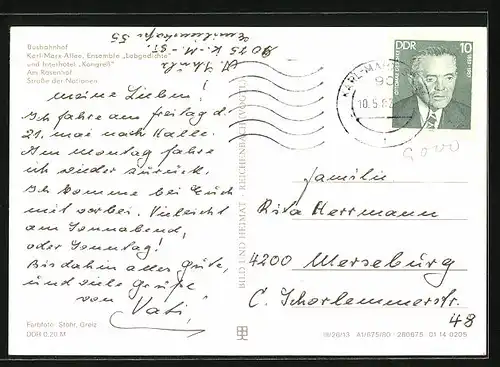 Bushahnhof
Karl-Marx-Allee, Ensemble „Lobgedichte“
und Interhotel „Kongreß“
Am Rosenhof
Straße der Nationen
55
9015 K.-M.-St.
Meine Lieben!
Ich fahre am Freitag d.
21. Mai nach Halle.
Am Montag fahre
ich wieder zurück.
Ich komme bei Euch
mit vorbei. Vieleicht
am Sonnabend,
oder Sonntag!
Bis dahin alles Gute,
und viele Grüße
von Vati!
Farbfoto: Stöhr, Greiz
DDR 0,20 M
BILD UND HEIMAT · REICHENBACH (VOGTL)
KARL-MARX
90
10.5.82
DDR 10
Familie
Rita Herrmann
4200 Merseburg
C. Schorlemmerstr.
48
III/26/13 A1/675/80 280675 01 14 0205